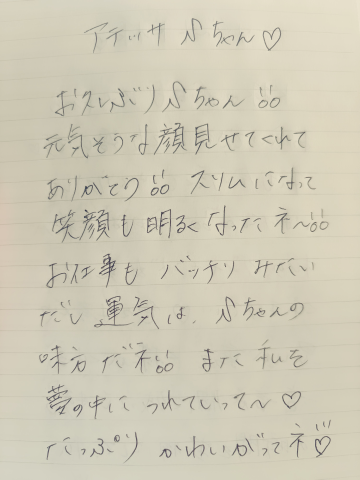 アテッサ Sちゃん♡
お久しぶり Sちゃん!!
元気そうな顔見せてくれて
ありがとう!! スリムになって
笑顔も明るくなったネ〜!!
お仕事も バッチリ みたい
だし 運気は、Sちゃんの
味方だネ!! また 私を
夢の中に つれていって〜♡
たっぷり かわいがってネ♡